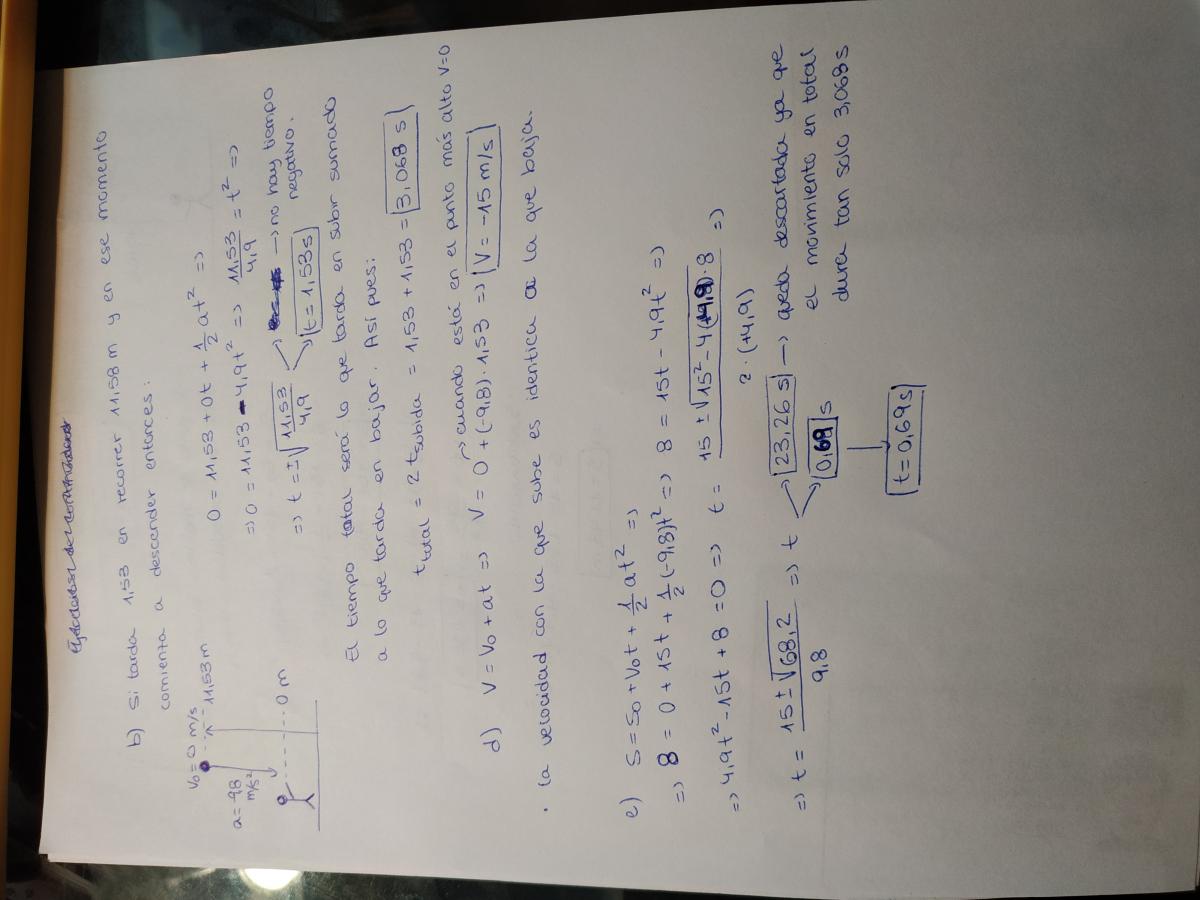 b) Si tarda 1,53 en recorrer 11,58 m y en ese momento
comienza a descender entonces:
V₀ = 0 m/s
11,53 m
a = 9,8
m/s²
0 m
0 = 11,53 + 0t + 1/2 at² =>
=> 0 = 11,53 - 4,9t² => 11,53/4,9 = t² =>
=> t = ±√(11,53/4,9) → no hay tiempo
negativo.
t = 1,53 s
El tiempo total será lo que tarda en subir sumado
a lo que tarda en bajar. Así pues:
t total = 2 t subida = 1,53 + 1,53 = 3,068 s
cuando está en el punto más alto V=0
d) V = V₀ + at => V = 0 + (-9,8)·1,53 => V = -15 m/s
· la velocidad con la que sube es identica a la que baja.
e) S = S₀ + V₀t + 1/2 at² =>
=> 8 = 0 + 15t + 1/2 (-9,8)t² => 8 = 15t - 4,9t² =>
=> 4,9t² - 15t + 8 = 0 => t = (15 ± √(15² - 4(+4,9)·8))/(2·(+4,9)) =>
=> t = (15 ± √68,2)/9,8 => t 23,26 s → queda descartada ya que
el movimiento en total
dura tan solo 3,068 s
0,69 s
t = 0,69 s